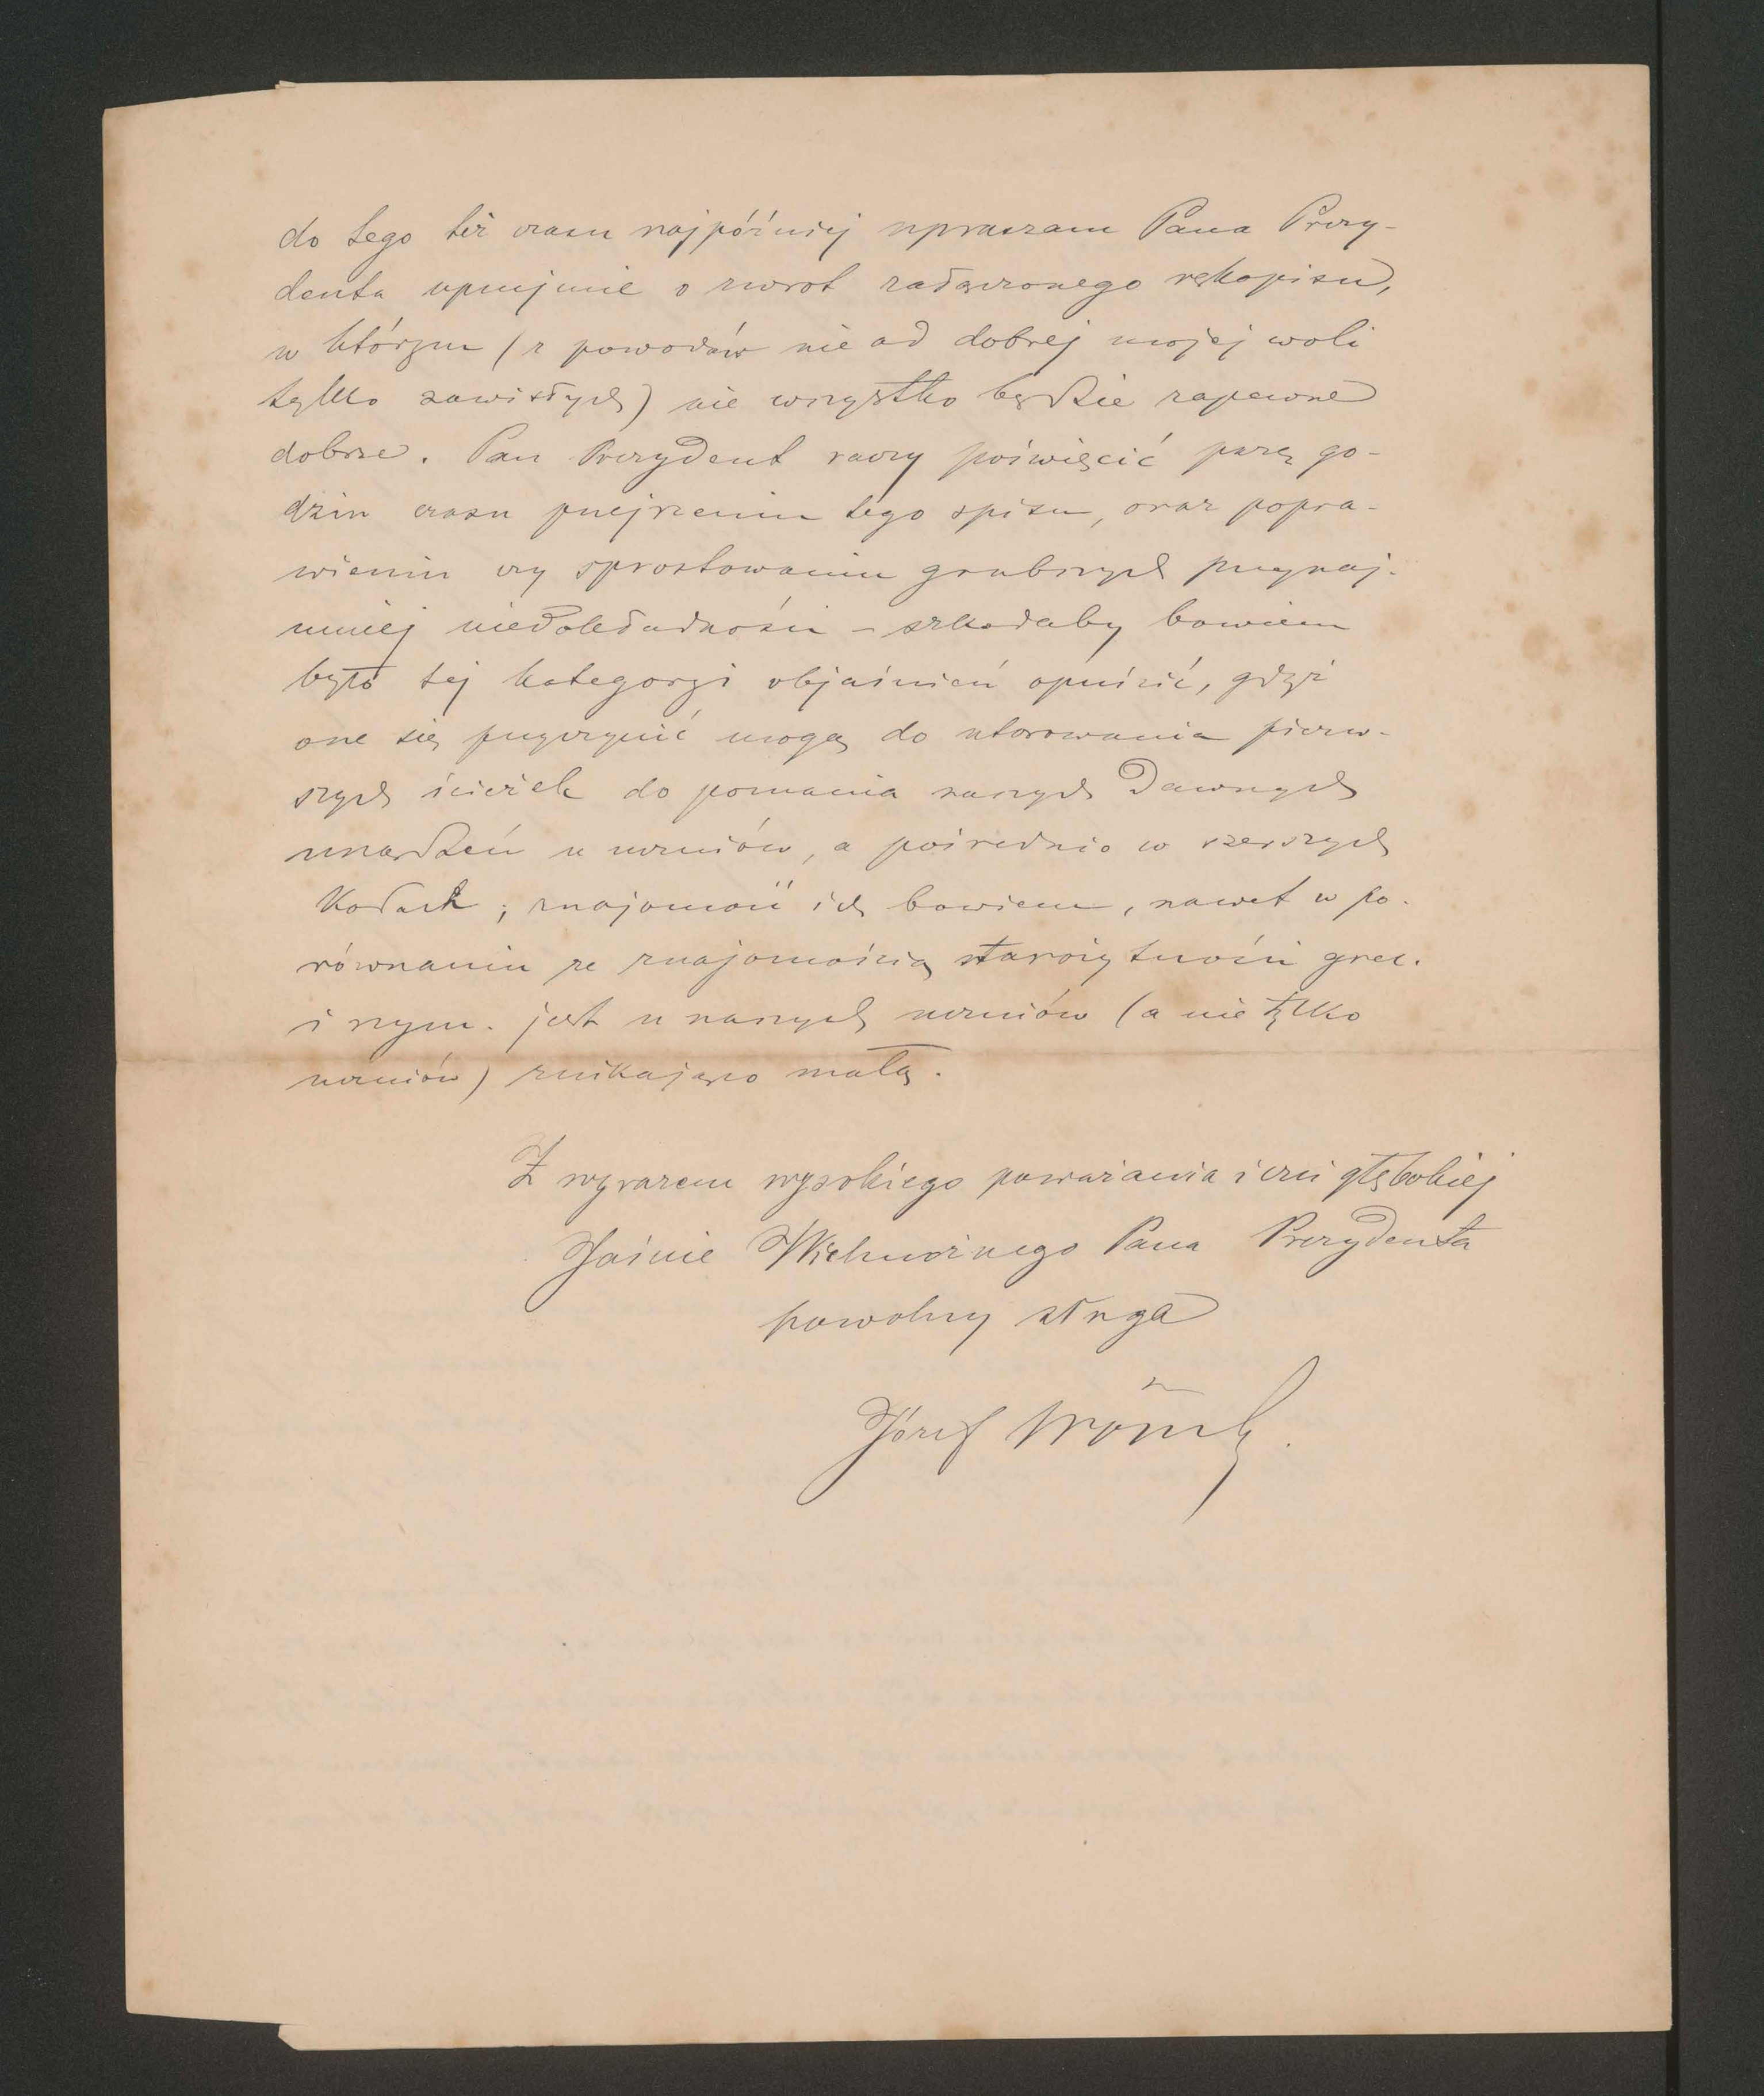 do tego też czasu najpóźniej upraszam Pana Prezy-
denta uprzejmie o zwrot załączonego rękopisu,
w którym (z powodów nie od dobrej mojej woli
tylko zawisłych) nie wszystko będzie zapewne
dobrze. Pan Prezydent raczy poświęcić parę go-
dzin czasu przejrzeniu tego spisu, oraz popra-
wieniu czy sprostowaniu grubszych przynaj-
mniej niedokładności – szkodaby bowiem
było tej kategoryi objaśnień opuścić, gdyż
one się przyczynić mogą do utorowania pierw-
szych ścieżek do poznania naszych dawnych
urządzeń u uczniów, a pośrednio w szerszych
kołach; znajomość ich bowiem, nawet w po-
równaniu ze znajomością starożytności grec.
i rzym. jest u naszych uczniów (a nie tylko
uczniów) znikająco małą.
Z wyrazem wysokiego poważania i czci głębokiej
Jaśnie Wielmożnego Pana Prezydenta
powolny sługa
Józef